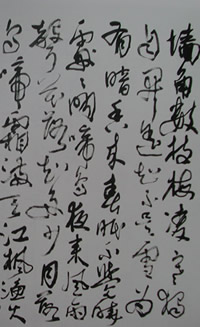 墙角数枝梅凌寒独
自开遥知不是雪为
有暗香来春眠不觉晓
处处闻啼鸟夜来风雨
声花落知多少月落
乌啼霜满天江枫渔火